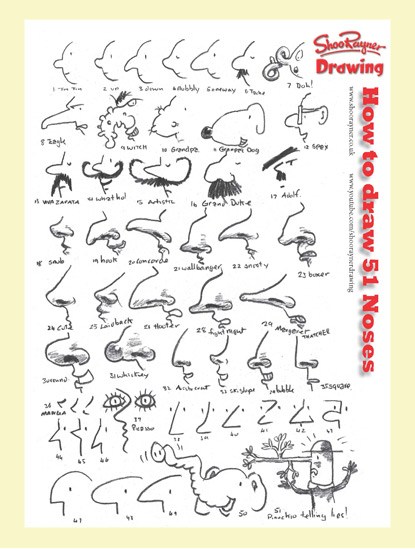 Shoo Rayner
Drawing
How to draw 51 Noses
www.shoorayner.co.uk
www.youtube.com/shooraynerdrawing
1 Tin Tin 2 up 3 down 4 Bobbly 5 oneway 6 Tache 7 Doh!
8 Eagle 9 WITCH 10 Grandpa 11 Gnasher Dog 12 Spex
13 WAZAPATA 14 what ho! 15 Artistic 16 Grand Duke 17 Adolf
18 Snob 19 hook 20 concorde 21 wallbanger 22 snooty 23 boxer
24 Cute 25 Laidback 27 Hooter 28 fightnight 29 Margaret THATCHER
30 round 31 whiskey 32 Aristocrat 33 Ski Slope 34 bobble 35 SQUARE
36 MANGA 37 Picasso 38 39 40 41 42 43
44 45 46
47 48 49 50 51 Pinocchio telling lies!